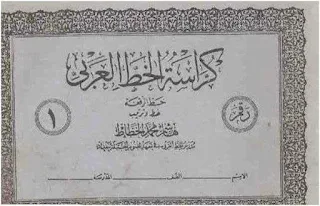 كراسة الخط العربي
خط الرقعة
خط وترتيب
رقم
هاشم محمد الخطاط
١
الاسم الصف المدرسة